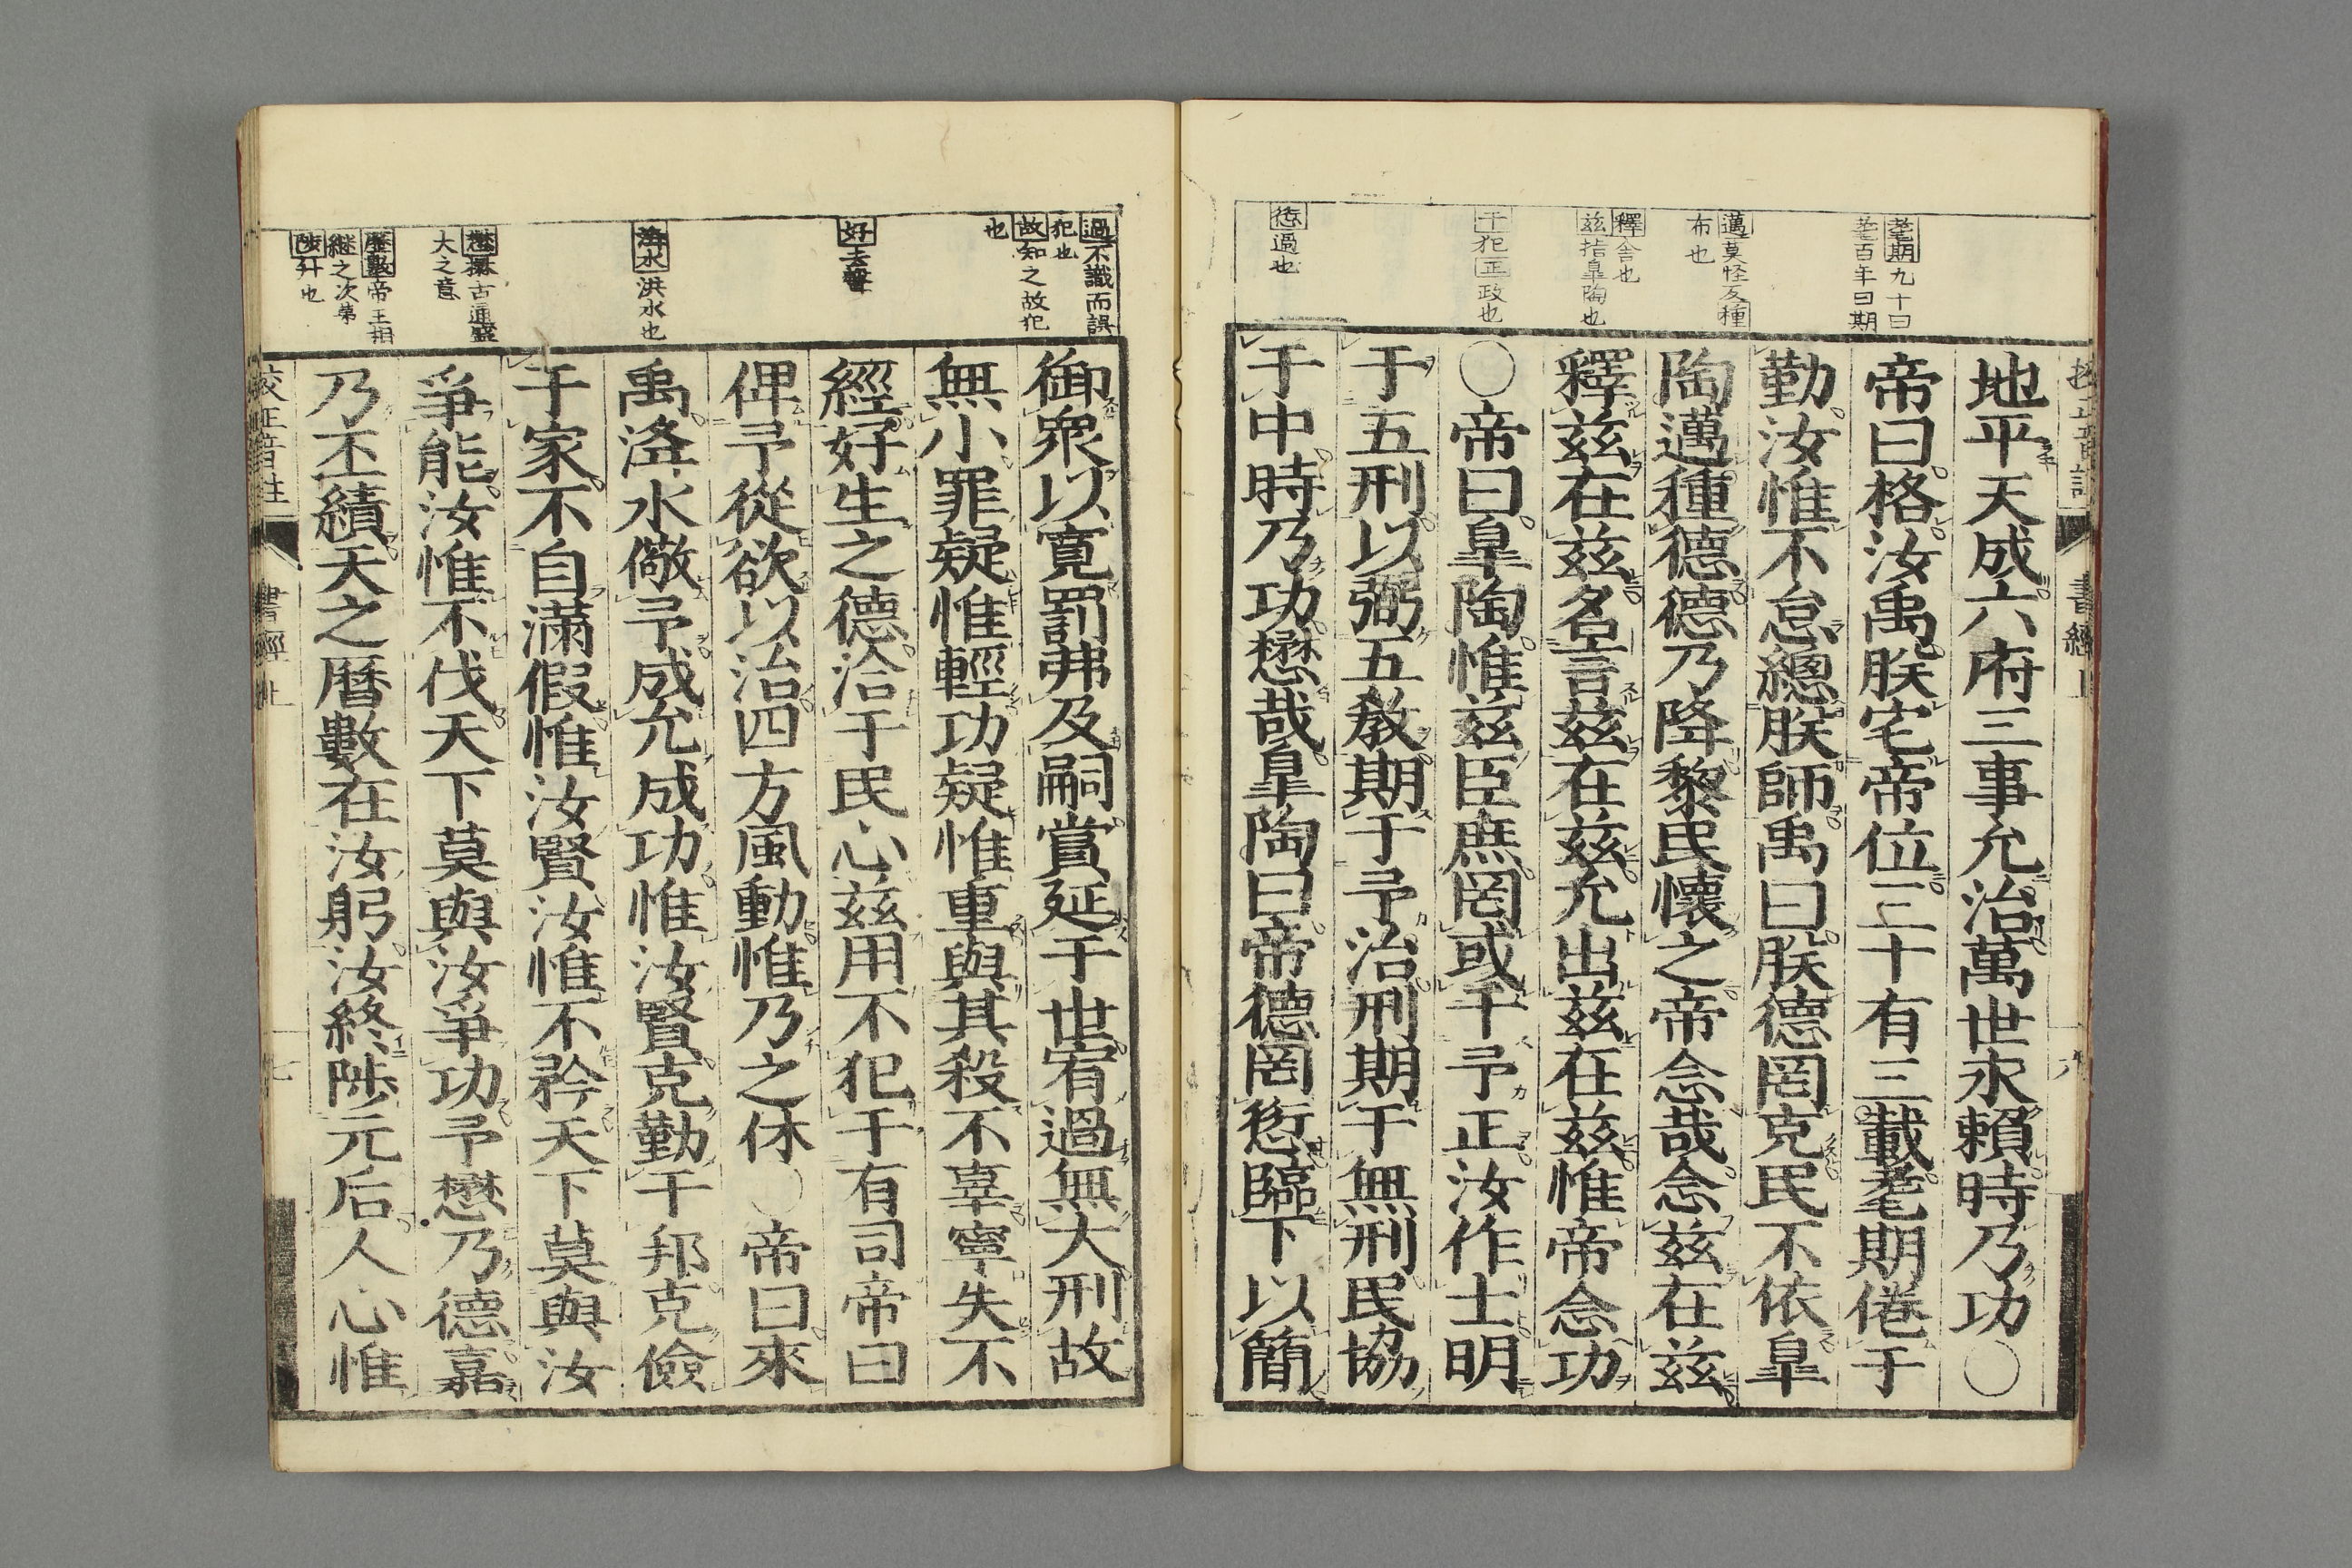 耄期九十曰
耄百年曰期
邁莫怪反種
布也
釋舍也
茲指皐陶也
干犯正政也
愆過也
地平天成六府三事允治萬世永賴時乃功○
帝曰格汝禹朕宅帝位三十有三載耄期倦于
勤汝惟不怠緫朕師禹曰朕德罔克民不依皐
陶邁種德德乃降黎民懷之帝念哉念茲在茲
釋茲在茲名言茲在茲允出茲在茲惟帝念功
○帝曰皐陶惟茲臣庶罔或干予正汝作士明
于五刑以弼五敎期于予治刑期于無刑民協
于中時乃功懋哉皐陶曰帝德罔愆臨下以簡
書經
過不識而誤
犯也
故知之故犯
也
好去聲
洚水洪水也
懋楙古通盛
大之意
歷數帝王相
継之次第
陟升也
御衆以寬罰弗及嗣賞延于世宥過無大刑故
無小罪疑惟輕功疑惟重與其殺不辜寧失不
經好生之德洽于民心茲用不犯于有司帝曰
俾予從欲以治四方風動惟乃之休○帝曰來
禹洚水儆予成允成功惟汝賢克勤于邦克儉
于家不自滿假惟汝賢汝惟不矜天下莫與汝
爭能汝惟不伐天下莫與汝爭功予懋乃德嘉
乃丕績天之曆數在汝躬汝終陟元后人心惟
校正音註
書經
七